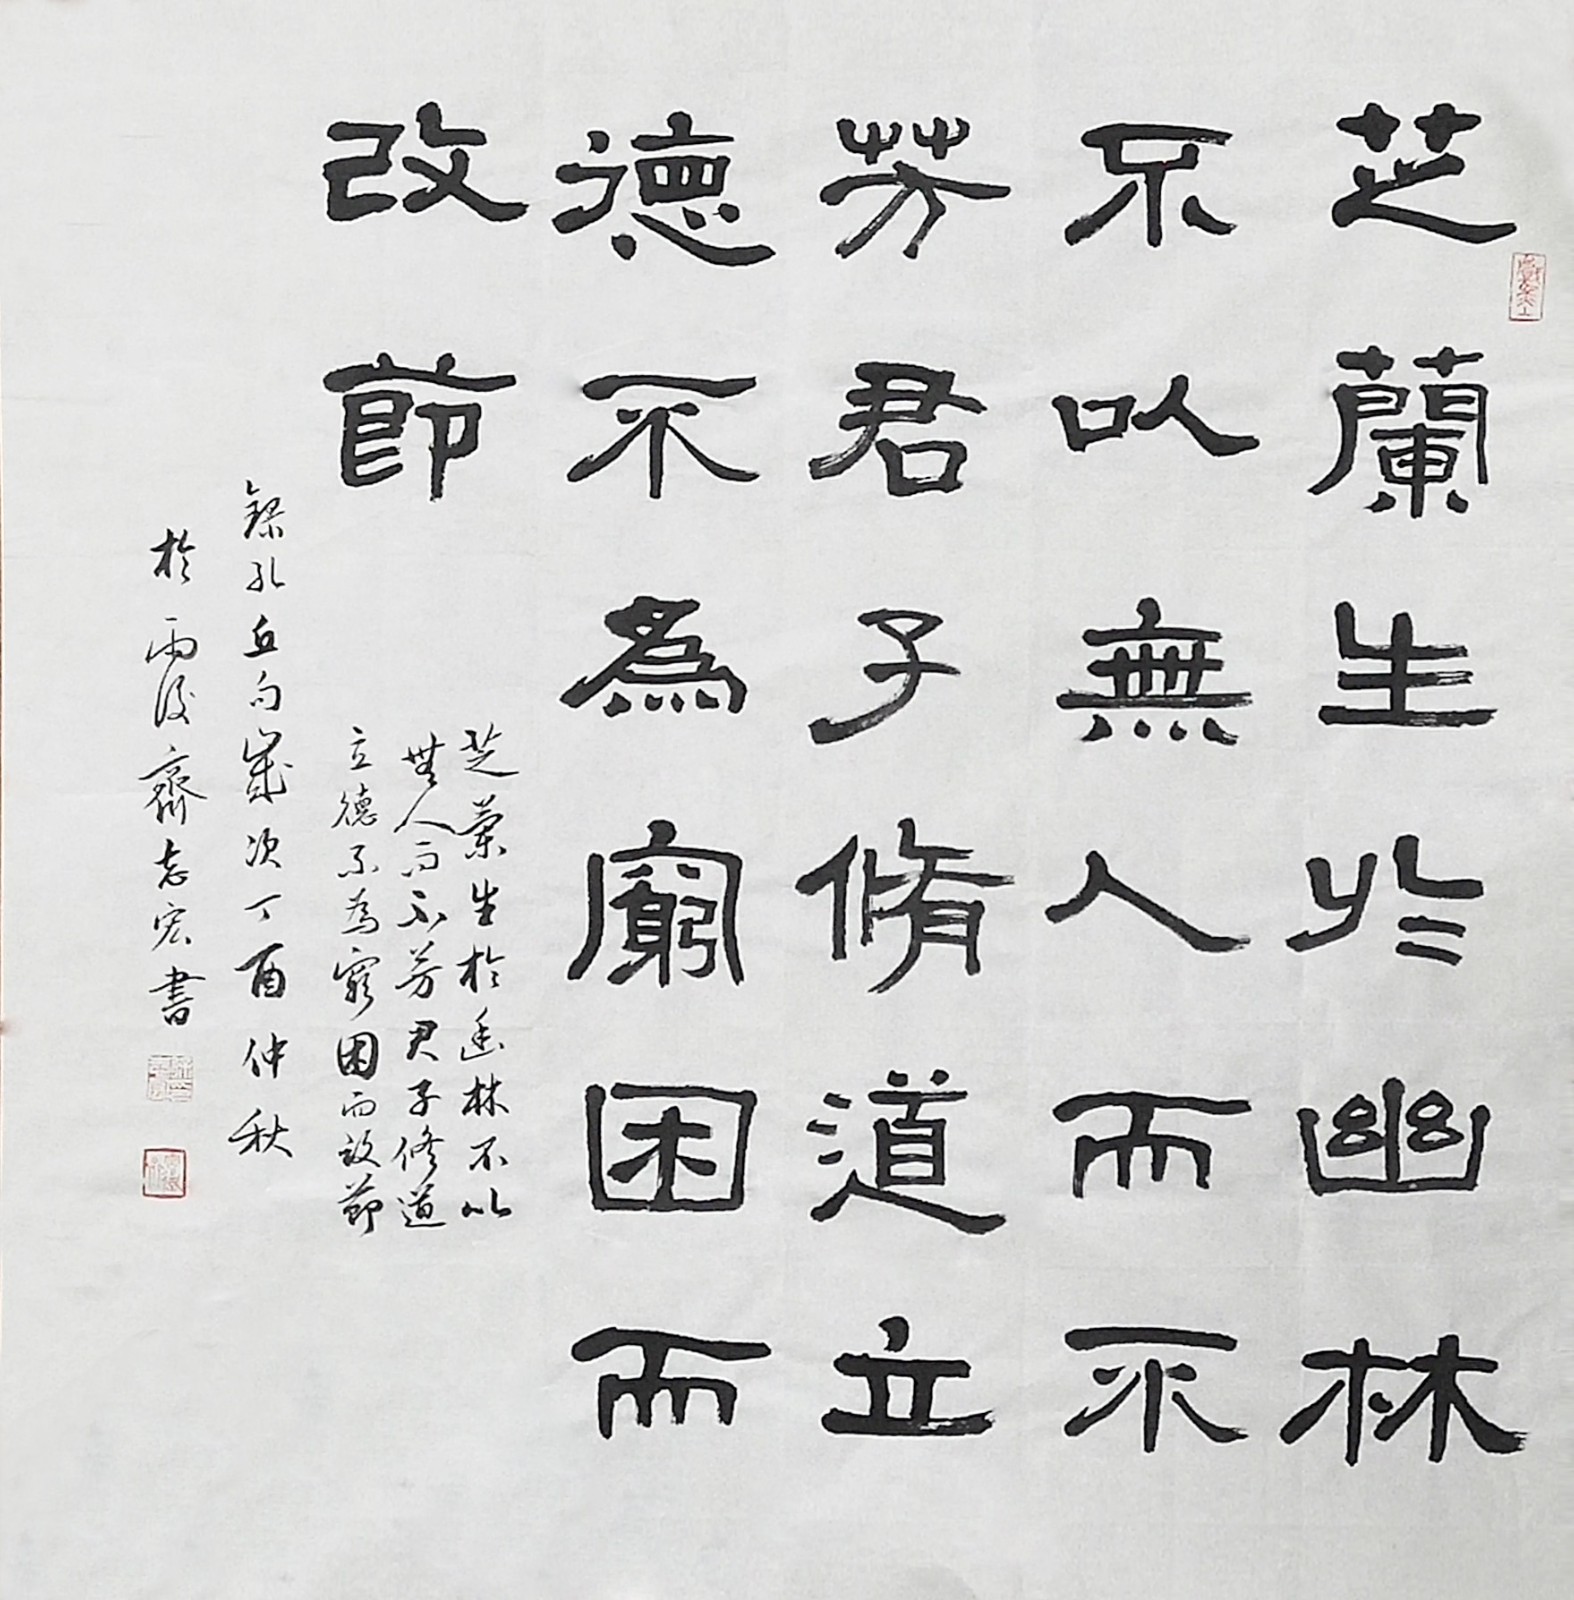 芝蘭生於幽林
不以無人而不
芳君子脩道立
德不為窮困而
改節
芝蘭生於幽林不以
無人而不芳君子修道
立德不為窮困而改節
錄孔丘句歲次丁酉仲秋
於雨後齋志宏書